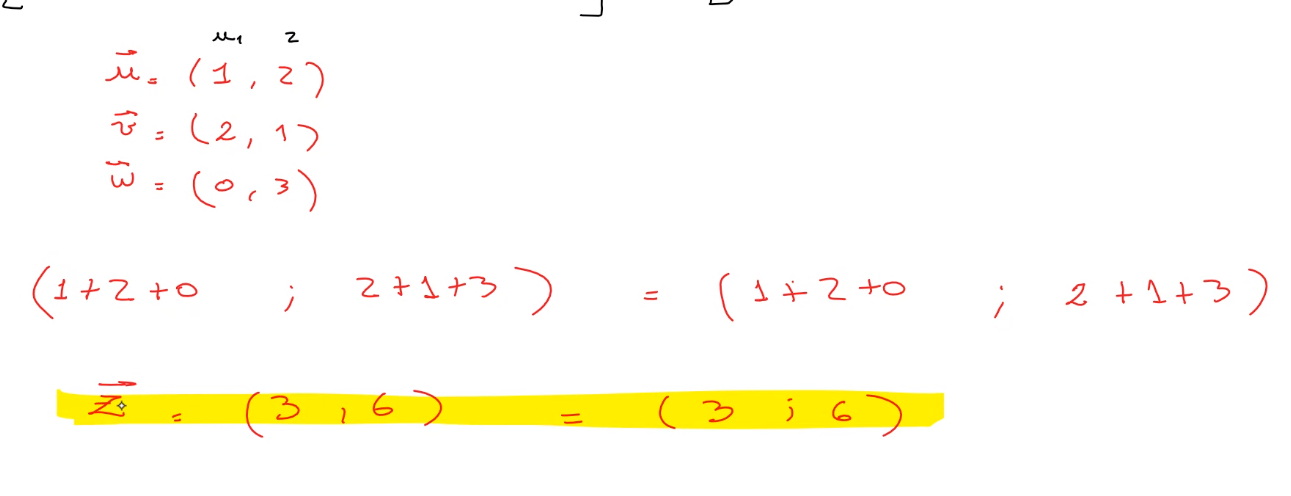 u₁ 2
u⃗ = (1, 2)
v⃗ = (2, 1)
w⃗ = (0, 3)
(1+2+0 ; 2+1+3) = (1+2+0 ; 2+1+3)
z⃗ = (3, 6) = (3 ; 6)